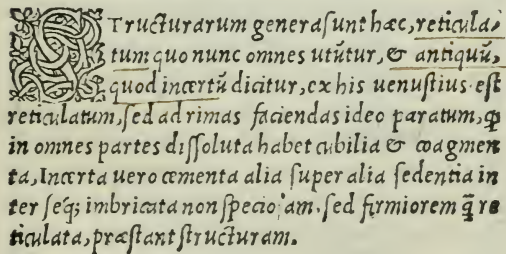 STructurarum genera sunt hæc, reticula-
tum quo nunc omnes utūtur, & antiquū,
quod incertū dicitur, ex his uenustius est
reticulatum, sed ad rimas faciendas ideo paratum, ꝙ
in omnes partes dissoluta habet cubilia & coagmen
ta, Incerta uero cæmenta alia super alia sedentia in
ter seq́; imbricata non specio am. sed firmiorem q̃ re
ticulata, præstant structuram.